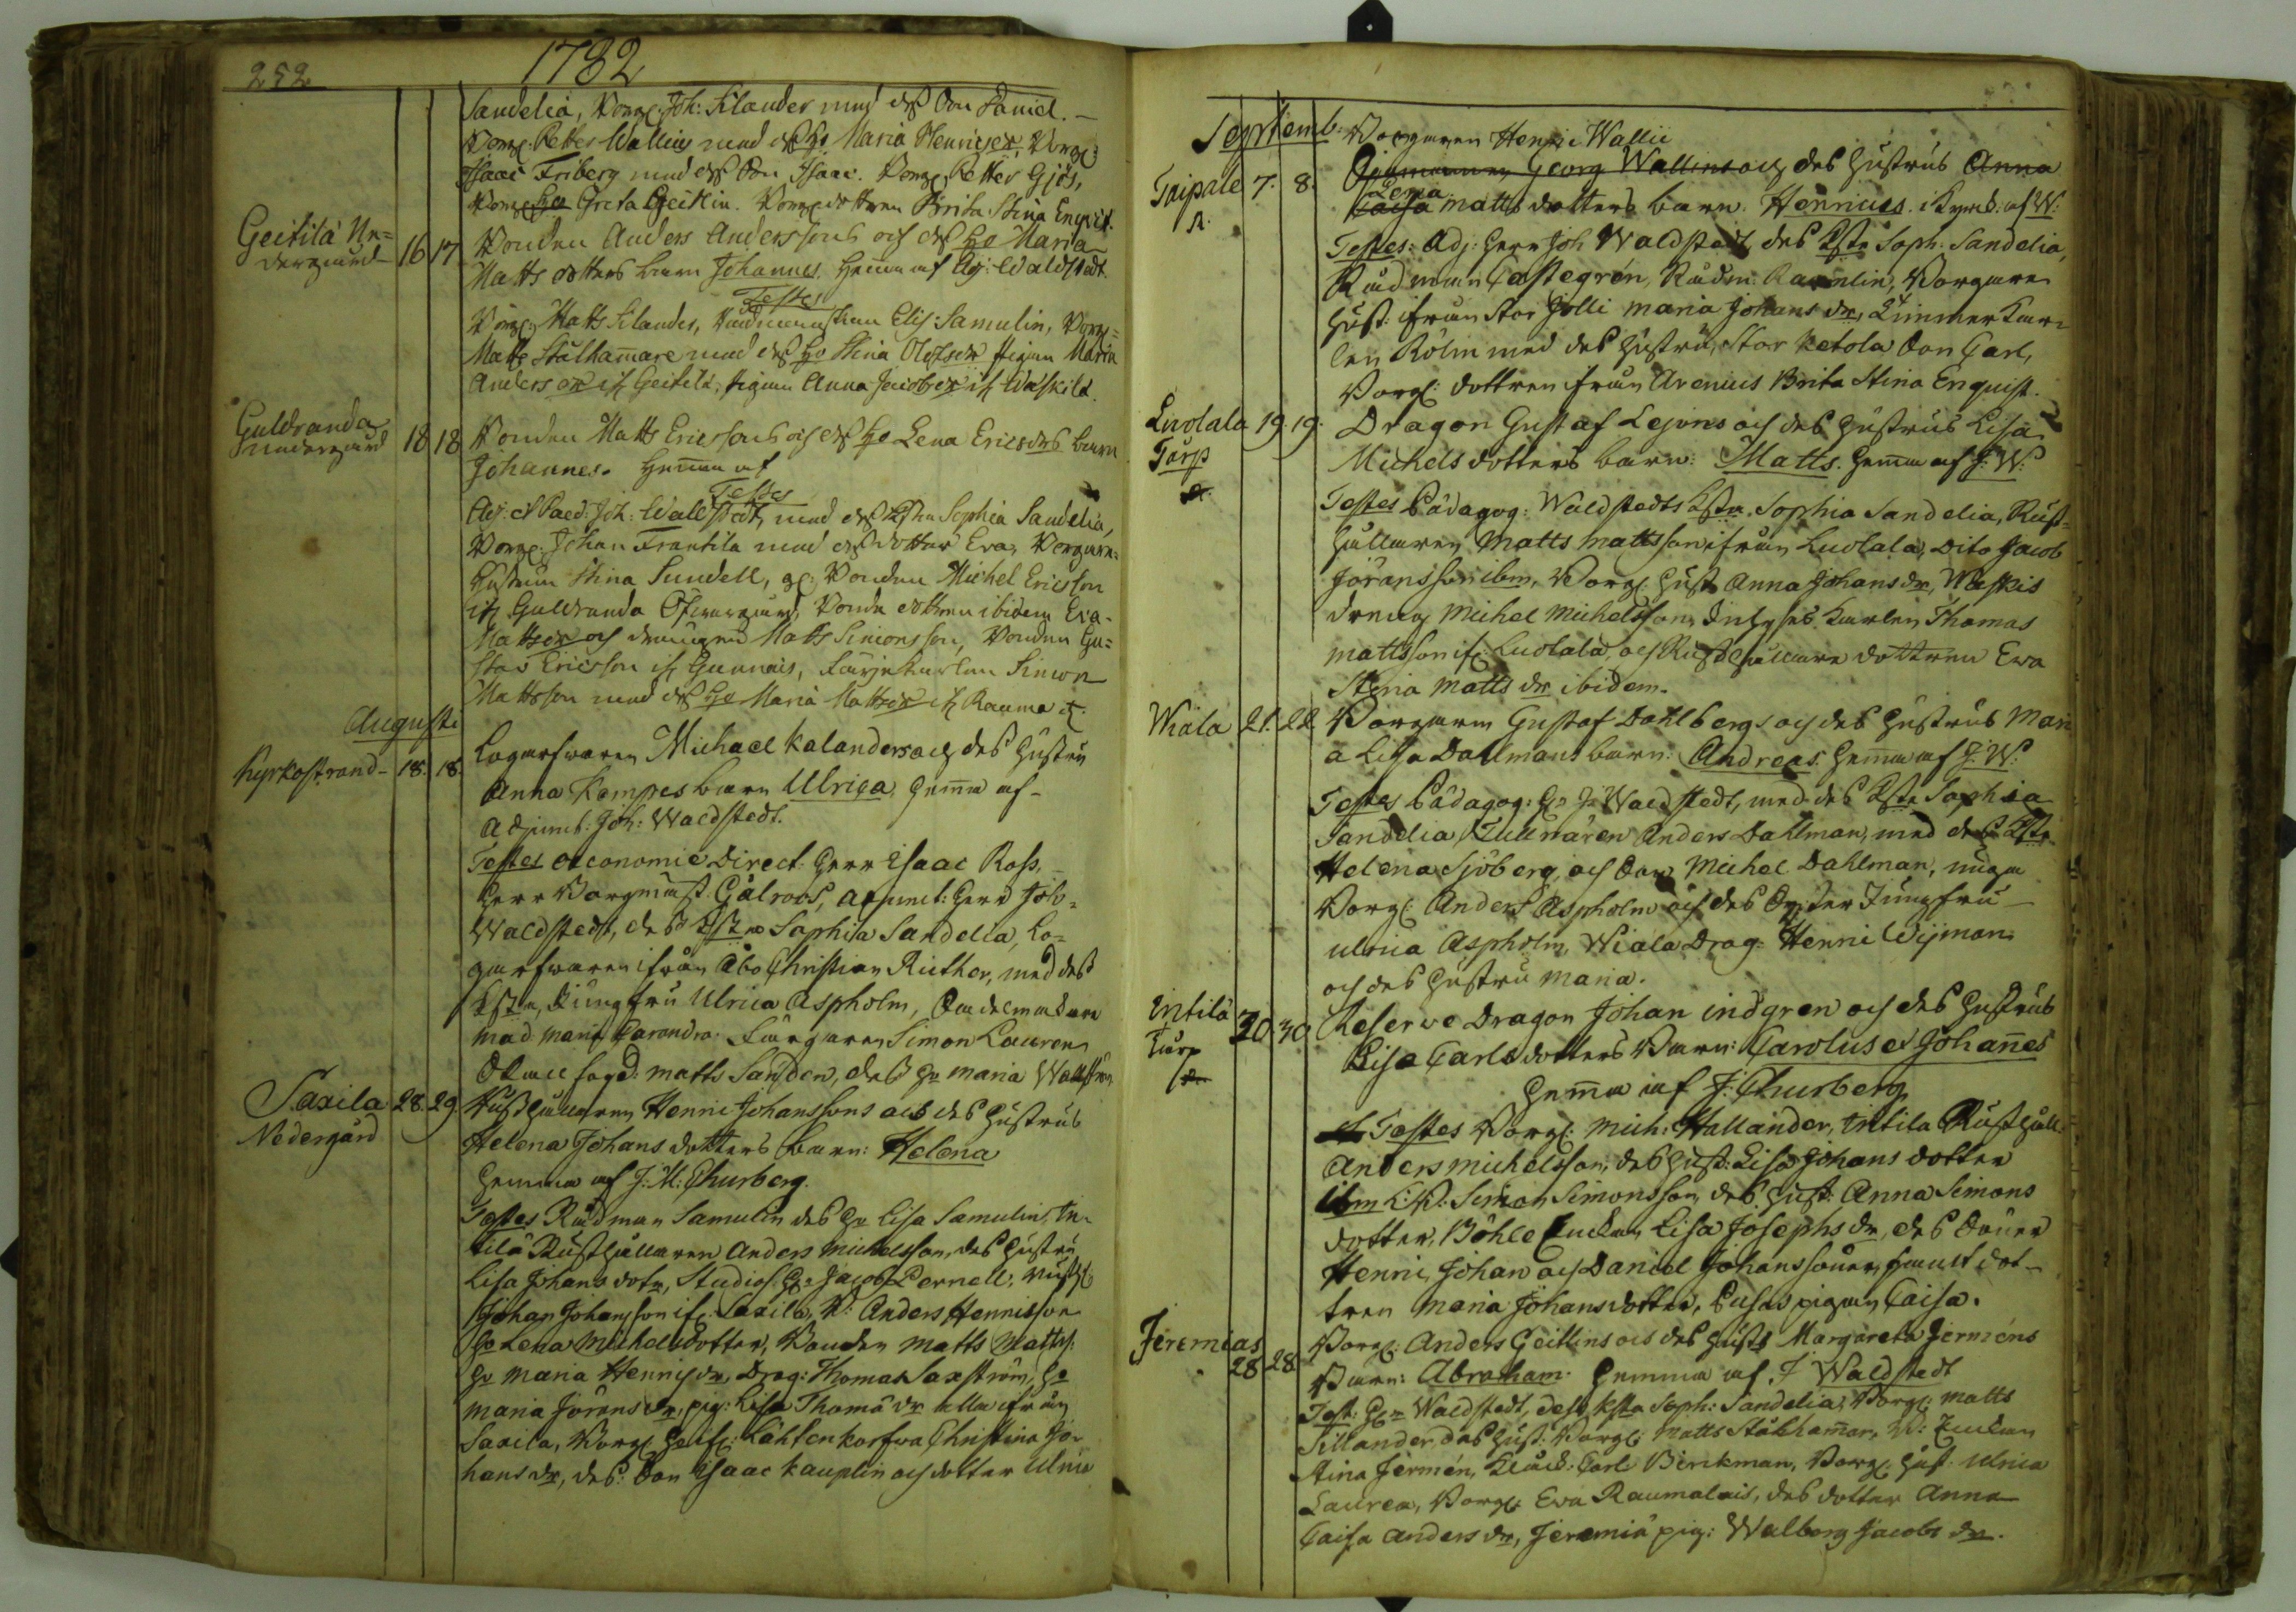 252
1782
Sandelia, Borg: Joh: Kilander med dess Son Daniel. –
Borg: Petter Wallius med dess Ho Maria Henricsdr, Borg:
Isaac Friberg med dess Son Isaac. Borg: Petter Gjös,
Borg: Ho Greta Geitlin. Borg: dottren Brita Stina Enqvist.
Geitila Ne=
dergård 16 17 Bonden Anders Anderssons och dess Ho Maria
Matts dotters barn Johannes. Hemma af Adj: Waldstedt.
Testes
Borg: Matts Kilander, Rådmanskan Elis: Samulin, Borg:
Matts Stålhammare med dess Ho Stina Olofsdr pigan Maria
Andersdr ifr Geitila, pigan Anna Jacobsdr ifr Waskila.
Guldranda
Nedergård 18 18 Bonden Matts Ericssons och dess Ho Lena Ericsdrs barn
Johannes. Hemma af
Testes
Adj: et Paed: Joh: Waldstedt, med dess Kstn Sophia Sandelia,
Borg: Johan Frantila med dess dotter Eva, Borgare=
hustrun Stina Sundell, Bonden Michel Ericsson
ifr Guldranda Öfvergård, Bonde dottren ibidem Eva
Mattsdr och drängen Matts Simonsson, Bonden Gu=
stav Ericsson ifr Gunnais, Färjekarlen Simon
Mattsson med dess Ho Maria Mattsdr ifr Rauma
Augusti
Kyrkostrand – 18. 18. Logarfwaren Michael Kalanders och des hustru
Anna Kampes barn Ulrica, hemma af –
Adjunct: Joh: Waldstedt.
Testes oeconomie Direct: Herr Isaac Ross,
Herr Borgmäst: Gälroos, Adjunct: Herr Joh=
Waldstedt, des Kstn Sophia Sandelia, Lo=
garfwaren ifrån Åbo Christian Riether, med dess
Kstn, Jungfru Ulrica Aspholm,
mad Maria Färgaren Simon Lauren
fogd: Matts Sanden, dess Ho Maria Wallström
Saxila
Nedergård 28. 29. Rusthållaren Henric Johanssons och des Hustrus
Helena Johans dotters barn: Helena
hemma af J: M: Churberg.
Testes Rådman Samulin des Ho Lisa Samulin, In=
tilä Rusthållaren Anders Michelsson, des Hustru
Lisa Johans dotr, Studios: Hr Jacob Pernell, Rusth:
Johan Johansson ifr: Saxila, B: Anders Henricsson
Ho Lena Michelsdotter, Bonden Matts Mattss:
Ho Maria Henricsdr, Drag: Thomas Saxström, Ho
Maria Göransdr, pig: Lisa Thomædr alla ifrån
Saxila, Borg: Lahtenkorfwa Christina Jo=
hansdr, des Son Isaac Kauplin och dotter Ulrica
Septemb: Borgaren Henric Wallii
Taipale
R. 7. 8. Georg Wallins och des hustrus Anna
Lena
Caisa Matts dotters barn. Henricus. i Kyrck: af W:
Testes: Adj: Herr Joh Waldstedt, des Kstn Soph: Sandelia,
Rådman Castegrén, Rådm: Ravelin, Borgare
hust: ifrån Stor Jolli Maria Johans dr, Timmer Kar=
len Rölin med des hustru, Stor Ketola Son Carl,
Borg: dottren ifrån Arenius Brita Stina Enquist.
Luolala
Torp
R. 19. 19. Dragon Gustaf Lejons och des Hustrus Lisa
Michels dotters barn: Matts. hemma af J: W:
Testes Pädagog: Waldstedts Kstn. Sophia Sandelia, Rust=
hållaren Matts Mattsson ifrån Luolala, Dito Jacob
Göransson ibm, Borg: Hust: Anna Johansdr, Waskis
dreng Michel Michelsson, Karlen Thomas
Mattsson ifr: Luolala, och Rusthållare dottren Ewa
Stina Mattsdr ibidem.
Wiala 21. 22. Borgaren Gustaf Dahlbergs och des hustrus Mari
a Lisa Dallmans barn: Andreas. hemma af J: W:
Testes Pädagog: Hr J: Waldstedt, med des Kstn Sophia
Sandelia, Tullnären Anders Dahlman, med des Kstn
Helena Sjöberg, och Son Michel Dahlman,
Borg: Anders Aspholm och des Syster Jungfru
Ulrica Aspholm, Wiala Drag: Henric Wijman
och des hustru Maria.
Intilä
Torp
R 30. 30. Reserve Dragon Johan indgren och des hustrus
Lisa Carls dotters Barn: Carolus et Johannes
hemma af J: Churberg
Testes Borg: Mich: Hallander, Intila Rusthåll:
Anders Michelsson, des hust: Lisa Johans dotter
ibm Simon Simonsson, des hust: Anna Simons
dotter, Böhle Enckan Lisa Josephsdr, des Söner
Henric, Johan och Daniel Johanssöner, samt dot=
tren Maria Johansdotter, Pusas pigan Caisa.
Jeremias
28 28 Borg: Anders Geitlins och des hustr Margareta Jerméns
Barn: Abraham: hemma af J Waldstedt
Test: Hr Waldstedt, dess Kstn Soph: Sandelia, Borg: Matts
Sillander, des hust: Borg: Matts Stålhammar, Enckan
Stina Jermén, Carl Birckman, Borg: hust: Ulrica
Laurea, Borg: Ewa Raumalais, des dotter Anna
Caisa Andersdr, Jeremiä pig: Walborg Jacobsdr.